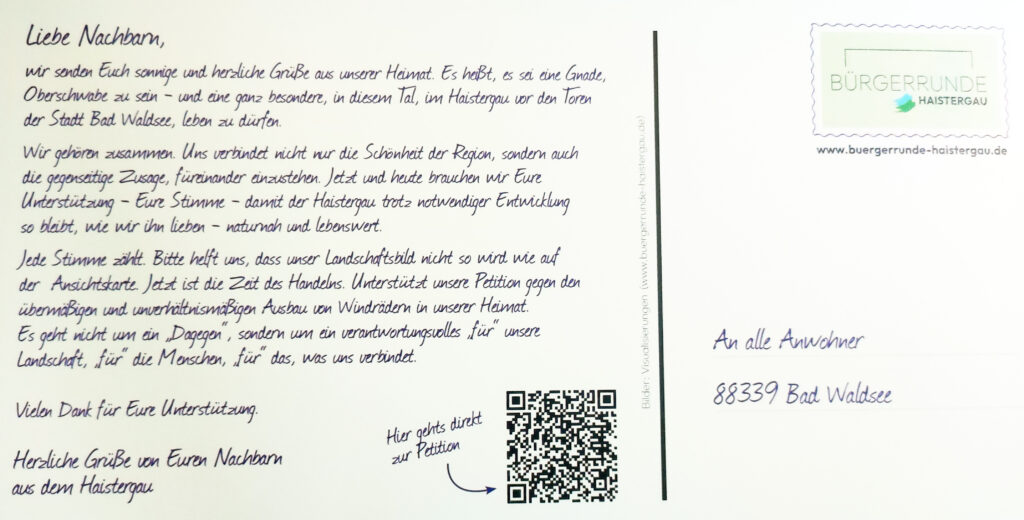 Liebe Nachbarn,
wir senden Euch sonnige und herzliche Grüße aus unserer Heimat. Es heißt, es sei eine Gnade,
Oberschwabe zu sein – und eine ganz besondere, in diesem Tal, im Haistergau vor den Toren
der Stadt Bad Waldsee, leben zu dürfen.
Wir gehören zusammen. Uns verbindet nicht nur die Schönheit der Region, sondern auch
die gegenseitige Zusage, füreinander einzustehen. Jetzt und heute brauchen wir Eure
Unterstützung – Eure Stimme – damit der Haistergau trotz notwendiger Entwicklung
so bleibt, wie wir ihn lieben – naturnah und lebenswert.
Jede Stimme zählt. Bitte helft uns, dass unser Landschaftsbild nicht so wird wie auf
der Ansichtskarte. Jetzt ist die Zeit des Handelns. Unterstützt unsere Petition gegen den
übermäßigen und unverhältnismäßigen Ausbau von Windrädern in unserer Heimat.
Es geht nicht um ein „Dagegen“, sondern um ein verantwortungsvolles „für“ unsere
Landschaft, „für“ die Menschen, „für“ das, was uns verbindet.
Vielen Dank für Eure Unterstützung.
Herzliche Grüße von Euren Nachbarn
aus dem Haistergau
Hier gehts direkt
zur Petition
Bilder: Visualisierungen (www.buergerrunde-haistergau.de)
BÜRGERRUNDE
HAISTERGAU
www.buergerrunde-haistergau.de
An alle Anwohner
88339 Bad Waldsee